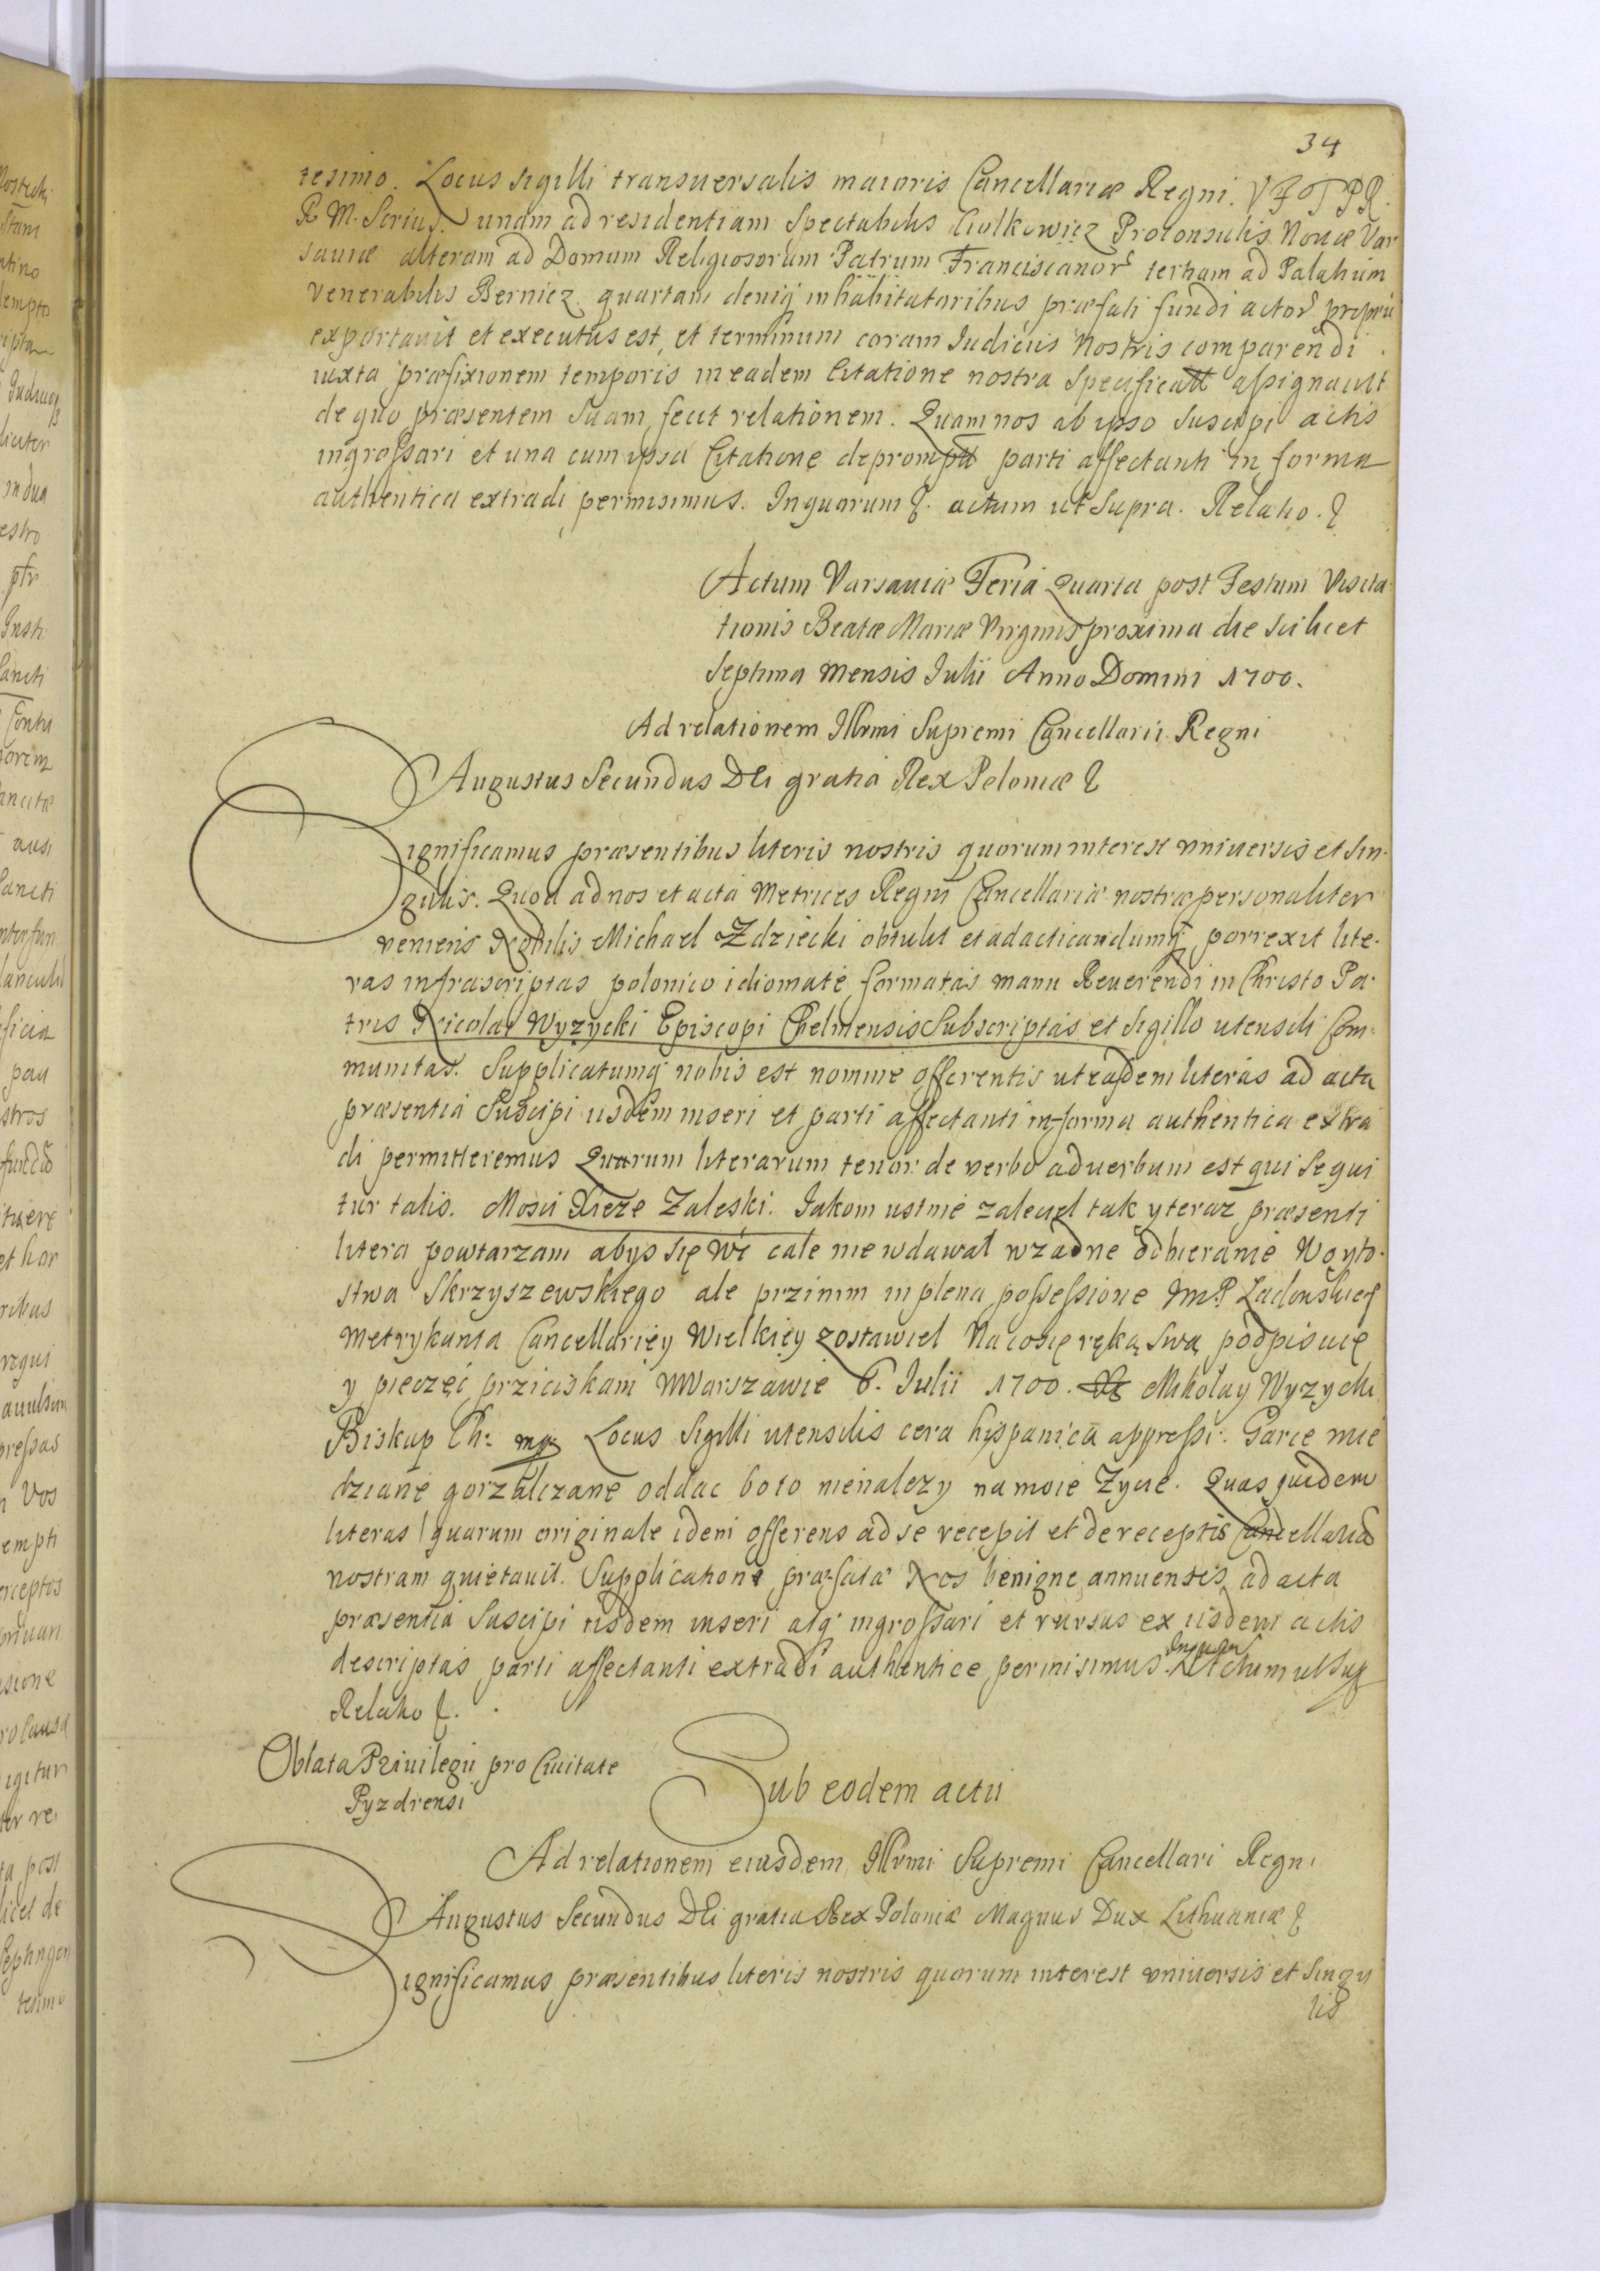 34
tesimo. Locus sigilli transuersalis maioris Cancellariæ Regni. V F T P R.
R M. Scrius. unam ad residentiam Spectabilis Ciolkiewicz Proconsulis Nouæ Var
sauiæ alteram ad Domum Religiosorum Patrum Franciscanor tertiam ad Palatium
Venerabilis Bernicz quartam deniq inhabitatoribus præfati fundi actor proprii
exportauit et executus est, et terminum coram Iudiciis Nostris comparendi
iuxta præfixionem temporis in eadem Citatione nostra specificatt assignauit
de quo præsentem suam fecit relationem. Quam nos ab ipso suscipi actis
ingrossari et una cum ipsa Citatione deprompta parti affectanti in forma
authentica extradi permisimus. In quarum &. actum ut supra. Relatio. &
Actum Varsauiæ Feria Quarta post Festum Visita
tionis Beatæ Mariæ Virginis proxima die scilicet
septima Mensis Iulii Anno Domini 1700.
Ad relationem Illrmi Supremi Cancellarii Regni
Augustus Secundus DEi gratia Rex Poloniæ &
Significamus præsentibus literis nostris quorum interest vniuersis et sin-
gulis. Quod ad nos et acta Metrices Regni Cancellariæ nostræ personaliter
veniens Nobilis Michael Zdziecki obtulit et ad acticandumq porrexit lite-
ras infrascriptas polonico idiomate formatas manu Reuerendi in Christo Pa-
tris Nicolai Wyzycki Episcopi Chelmensis Subscriptas et sigillo utensili Com-
munitas. Supplicatumq nobis est nomine offerentis ut easdem literas ad acta
præsentia suscipi iisdem inseri et parti affectanti in forma authentica extra
di permitteremus Quarum literarum tenor de verbo ad verbum est qui sequi
tur talis. Mosci Xięże Zaleski. Iakom ustnie zalecił tak y teraz præsenti
litera powtarzam abys się WC cale nie wdawał w żadne odbieranie Woyto-
stwa Skrzyszewskiego ale przi nim in plena possessione Im P. Ladonskieg
Metrykanta Cancellariey Wielkiey zostawieł Na co się ręką swą podpisuię
y pieczęć prziciskam w Warszawie 6. Iulii 1700. Mikołay Wyzycki
Biskup Ch: mp Locus sigilli utensilis cera hispanica appressi. Garce mie
dziane gorzałczane oddac bo to nienależy na moie Zycie. Quas quidem
literas quarum originale idem offerens ad se recepit et de receptis Cancellariã
nostram quietauit. Supplicatione præfata Nos benigne annuentes, ad acta
præsentia suscipi iisdem inseri atq ingrossari et rursus ex iisdem actis
descriptas parti affectanti extradi authentice permisimus. In quar Actum ut sup
Relatio &.
Oblata Priuilegii pro Ciuitate
Pyzdrensi
Sub eodem actu
Ad relationem eiusdem Illrmi Supremi Cancellari Regni
Augustus Secundus DEi gratia Rex Poloniæ Magnus Dux Lithuaniæ &
Significamus præsentibus literis nostris quorum interest vniuersis et singu
lis